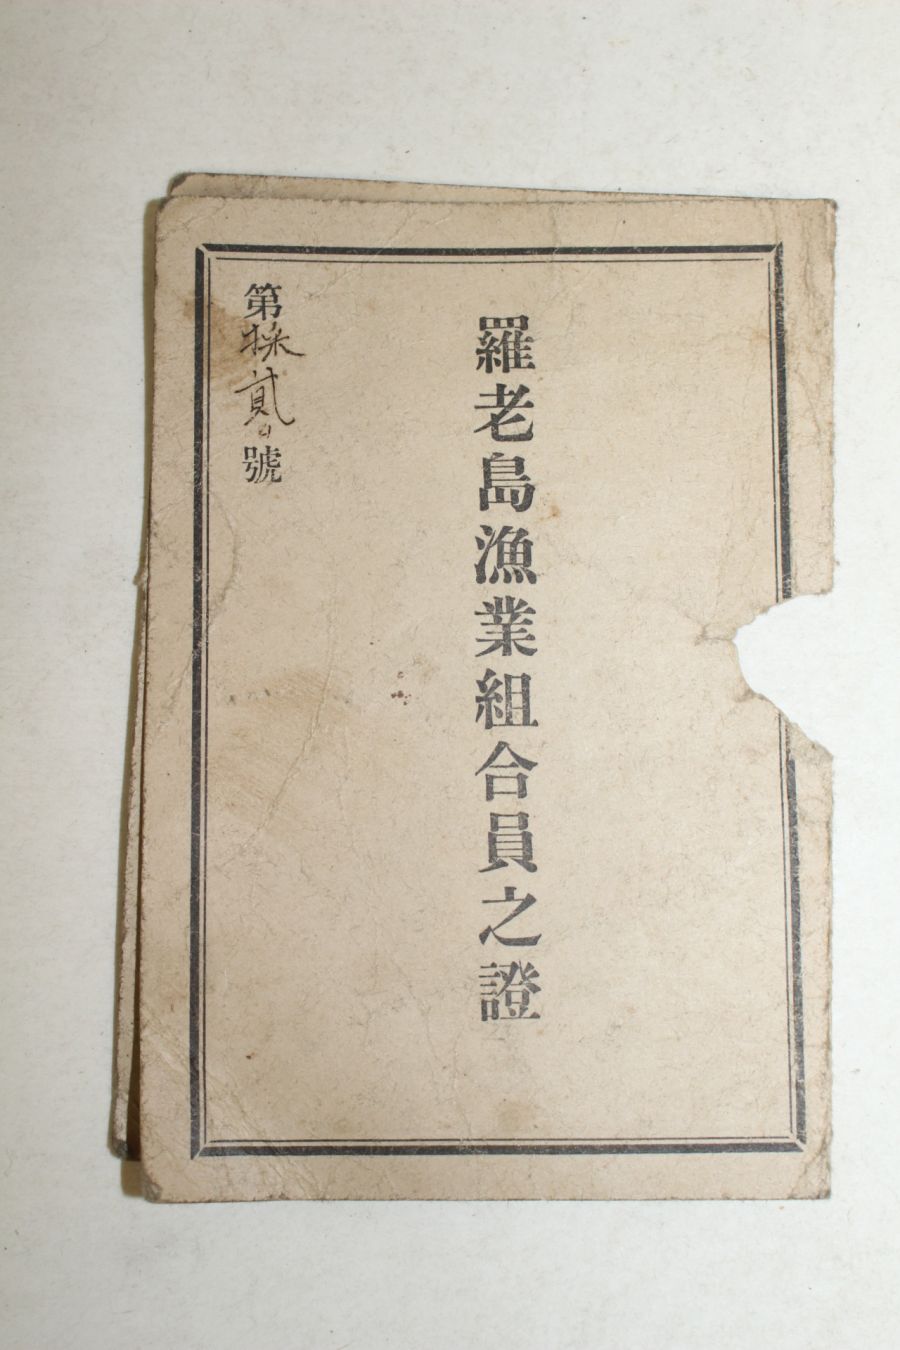 羅老島漁業組合員之證
第採貳號